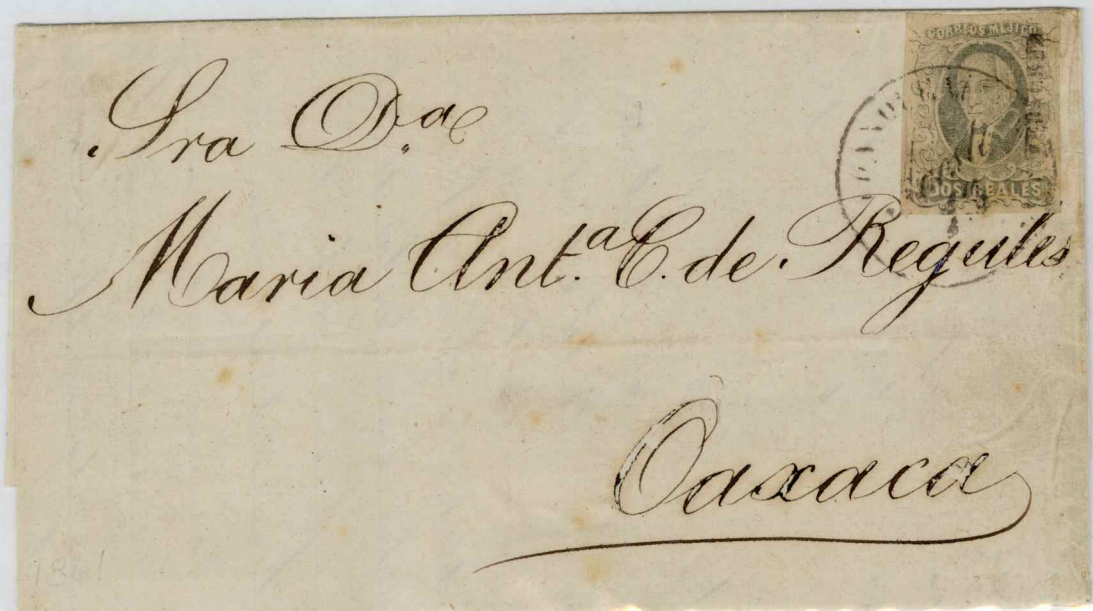 CORREOS MEJICO
DOS REALES
Sra D.ª
Maria Ant.ª E. de Regules
Oaxaca
1861